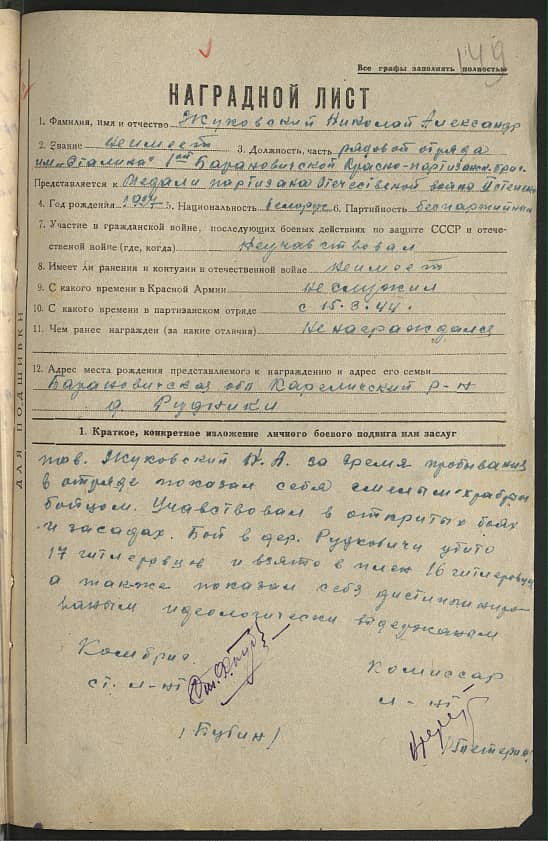 149
Все графы заполнять полностью
НАГРАДНОЙ ЛИСТ
1. Фамилия, имя и отчество Жуковский Николай Александр
2. Звание неимеет 3. Должность, часть рядовой отряда
им. "Сталина" 1ой Барановичской Красно-партизанск. бриг.
Представляется к Медали партизана Отечественой войны II степени
4. Год рождения 1904 5. Национальность белорус 6. Партийность беспартийный
7. Участие в гражданской войне, последующих боевых действиях по защите СССР и отече-
ственой войне (где, когда) Неучавствовал
8. Имеет ли ранения и контузии в отечественой войне неимеет
9. С какого времени в Красной Армии неслужил
10. С какого времени в партизанском отряде с 15.3.44.
11. Чем ранее награжден (за какие отличия) Ненаграждался
12. Адрес места рождения представляемого к награждению и адрес его семьи
Барановичская обл Кареличский р-н
д. Рудники
ДЛЯ ПОДШИВКИ
1. Краткое, конкретное изложение личного боевого подвига или заслуг
тов. Жуковский Н. А. за время пробывания
в отряде показал себя смелым храбрым
бойцом. Учавствовал в открытых боях
и засадах. Бой в дер. Рудковичи убито
17 гитлеровцев и взято в плен 16 гитлеровцев
а также показал себя дистиплиниро-
ваным идеологически выдержаным
Комбриг
ст. л-нт
Комиссар
л-нт
(Бубин)